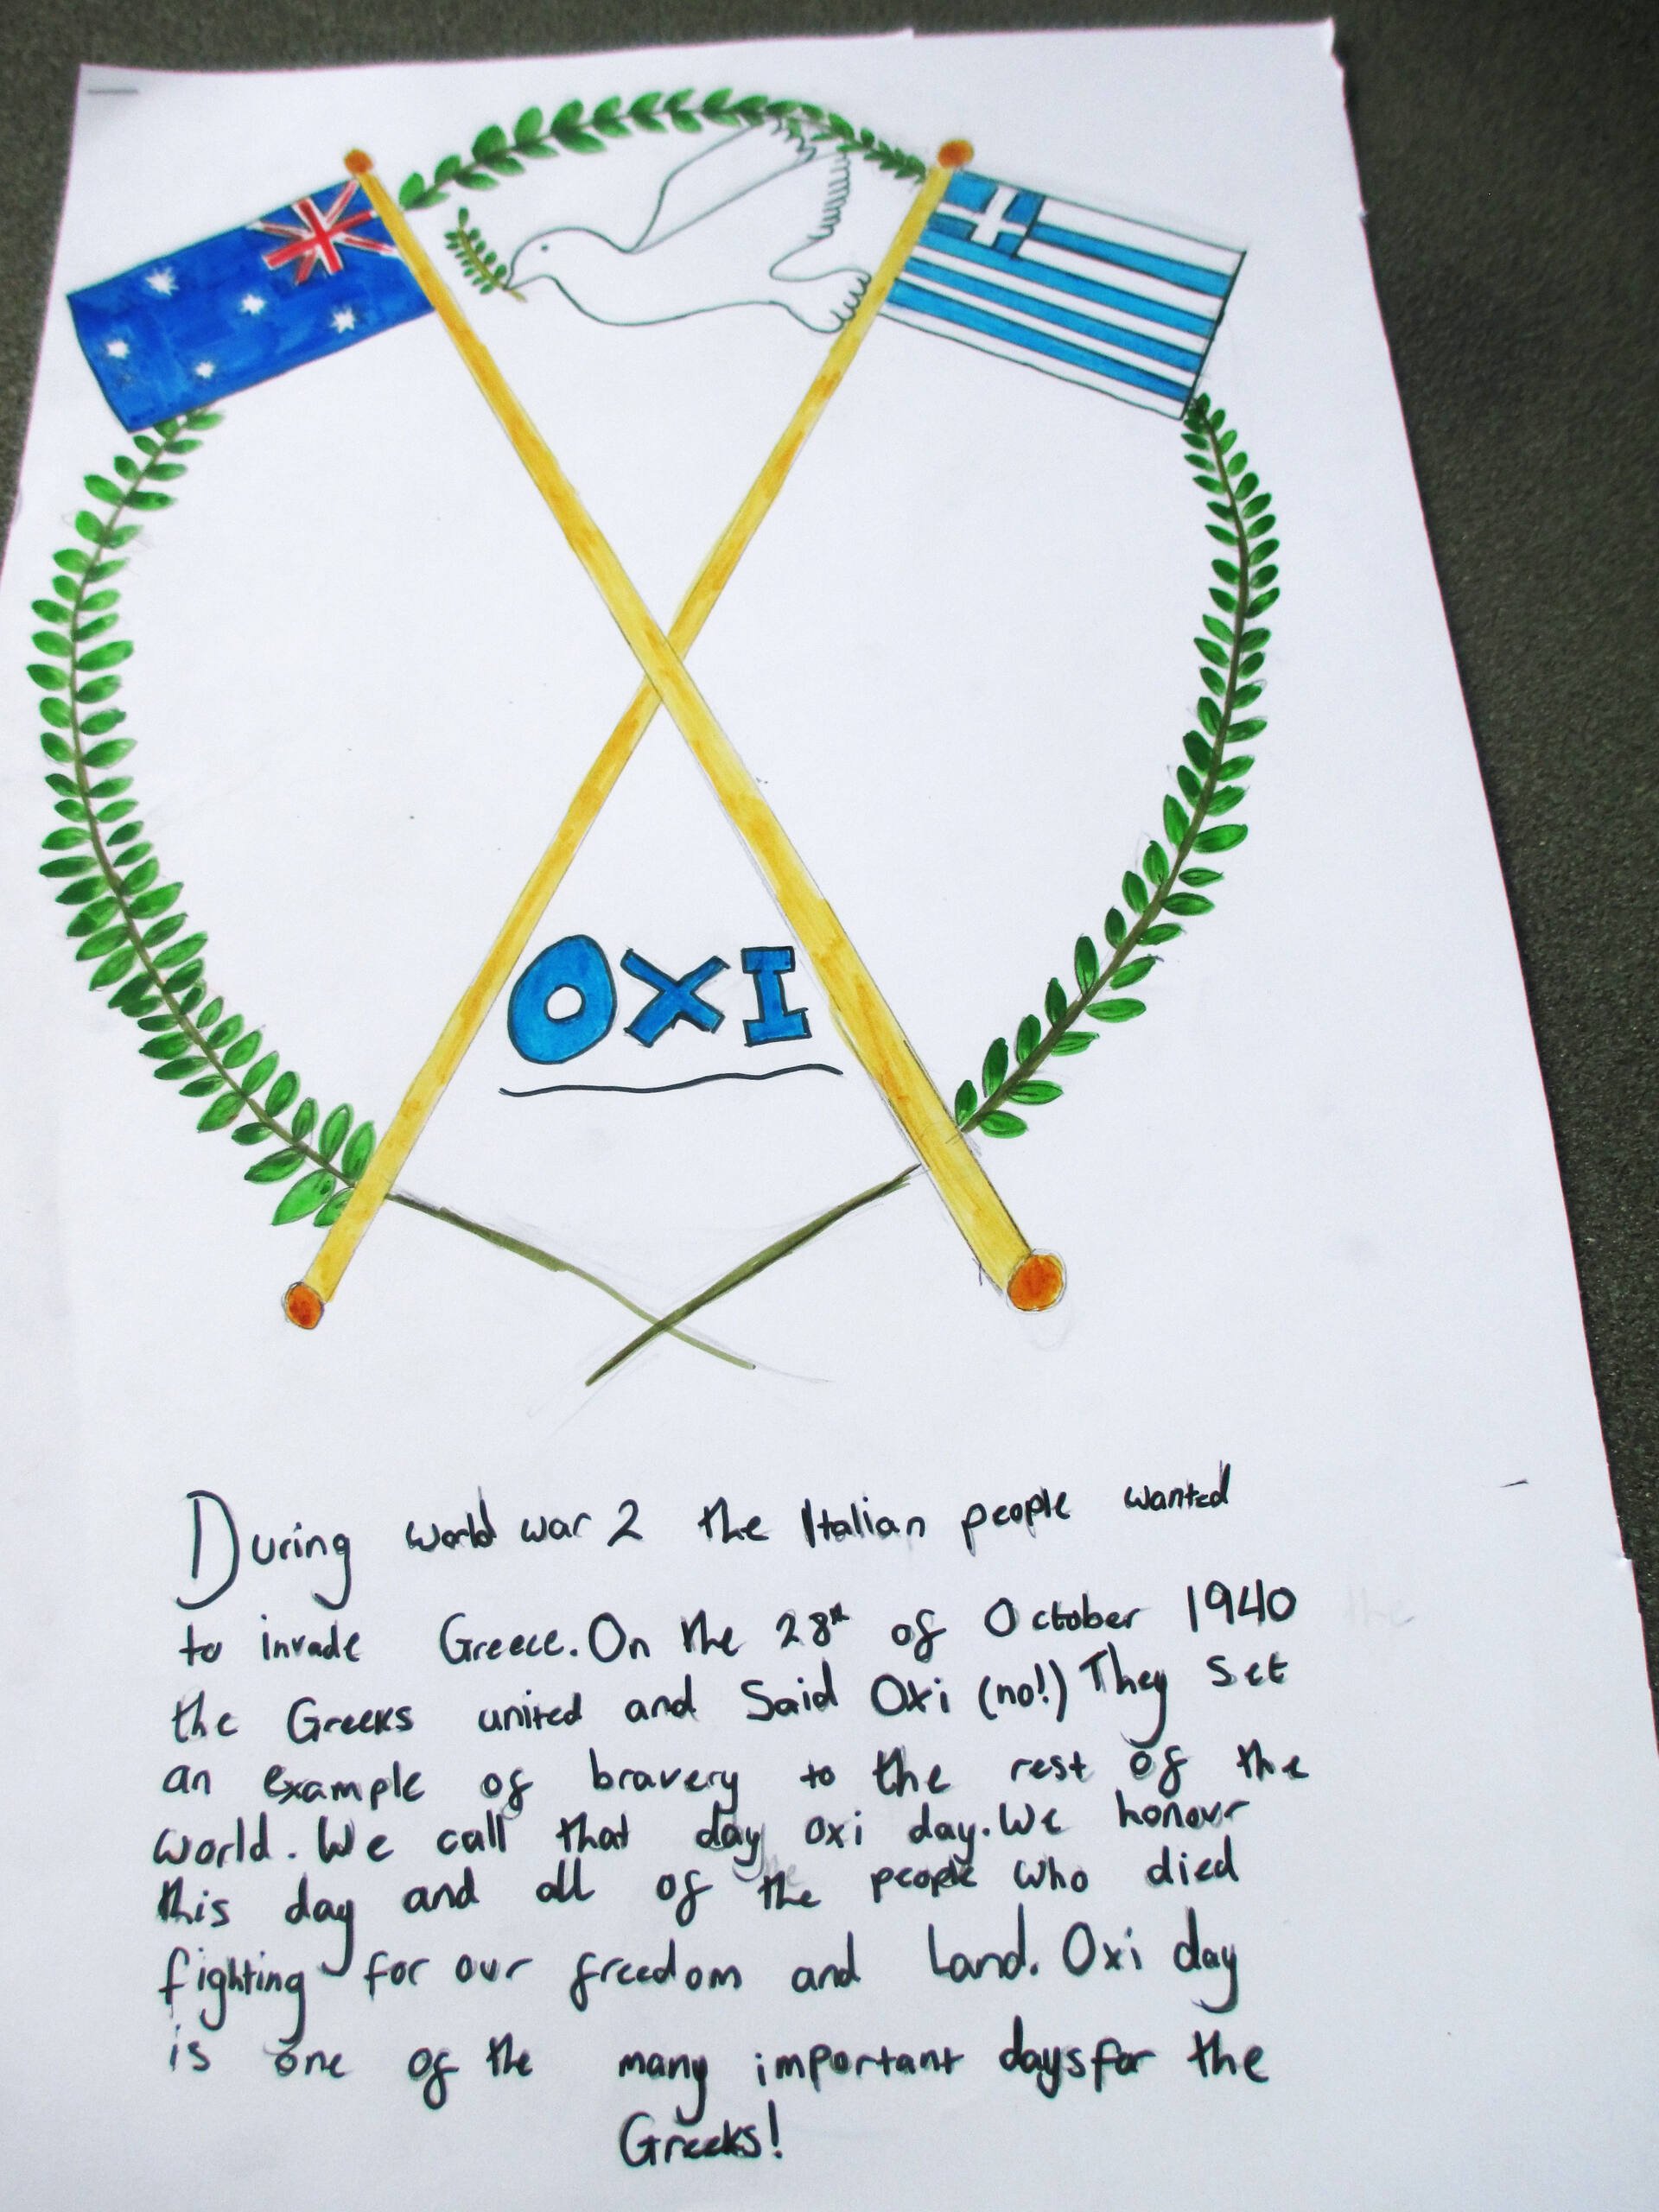 OXI
During world war 2 the Italian people wanted
to invade Greece. On the 28th of October 1940
the Greeks united and Said Oxi (no!) They set
an example of bravery to the rest of the
world. We call that day oxi day. We honour
this day and all of the people who died
fighting for our freedom and Land. Oxi day
is one of the many important days for the
Greeks!